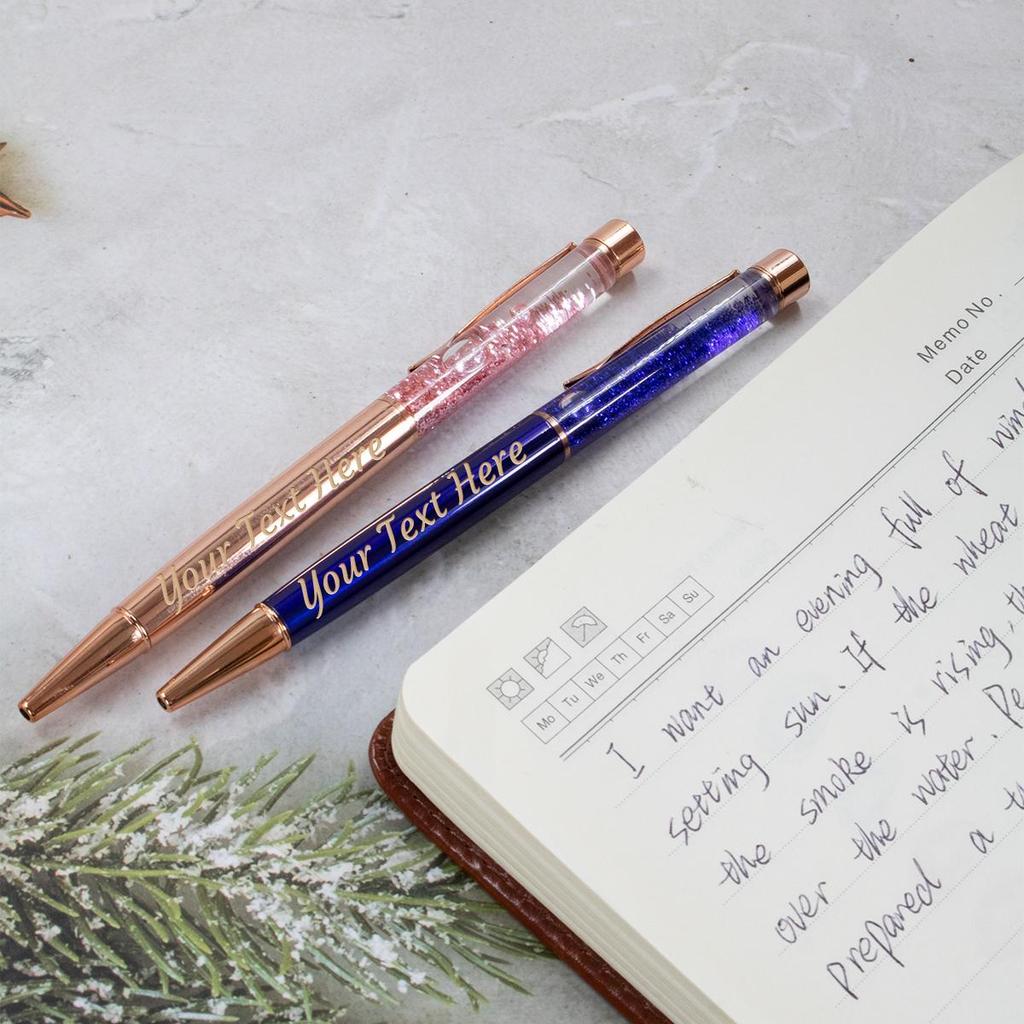 Your Text Here
Your Text Here
Memo No.
Date
Mo Tu We Th Fr Sa Su
I want an evening full of
setting sun. If the wheat
the smoke is rising, th
over the water. Pe
prepared a